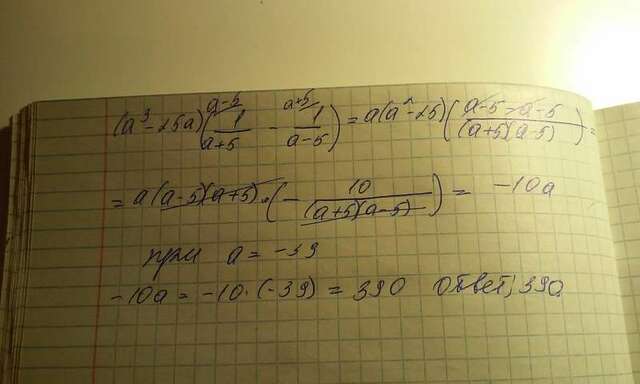 (a³-25a)(1/(a+5) ᵃ⁻⁵ - 1/(a-5) ᵃ⁺⁵) = a(a²-25)((a-5-a-5)/((a+5)(a-5))) =
= a(a-5)(a+5)·(-10/((a+5)(a-5))) = -10a
при a = -39
-10a = -10·(-39) = 390 Ответ; 390